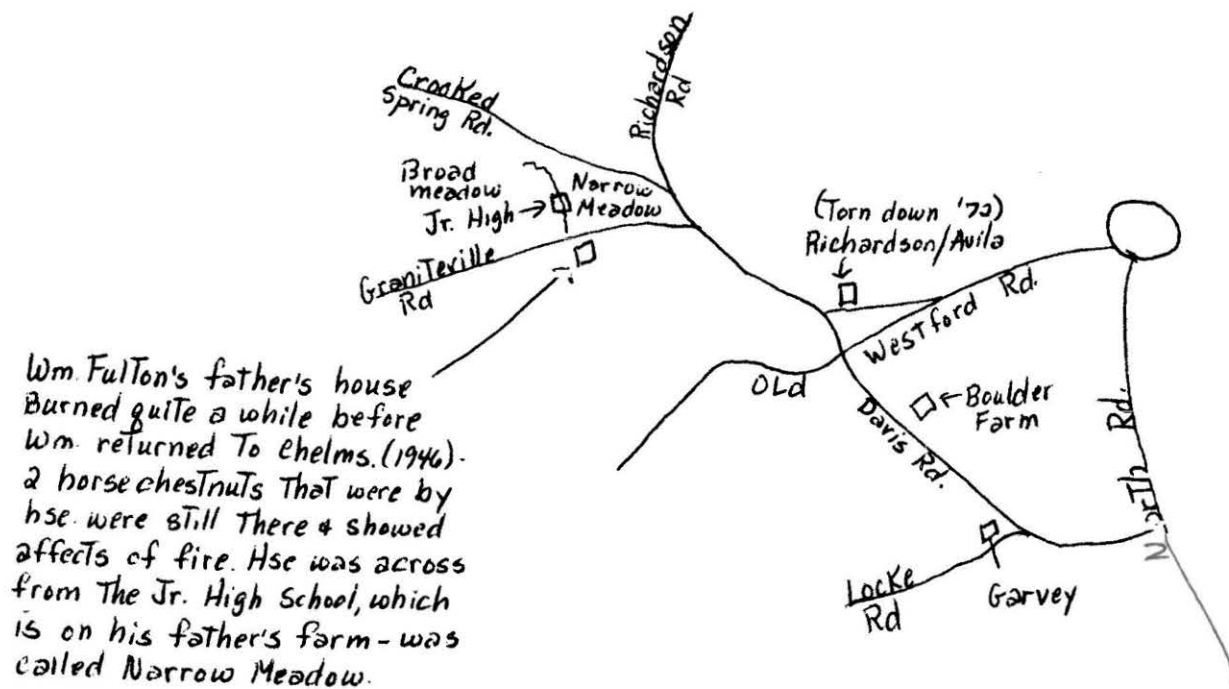 Richardson
Rd
Crooked
Spring Rd.
Broad
meadow
Jr. High
Narrow
Meadow
Graniteville
Rd
(Torn down '72)
Richardson/Avila
Westford Rd.
Old
Davis Rd.
Boulder
Farm
North Rd.
Locke
Rd
Garvey
Wm. Fulton's father's house
Burned quite a while before
Wm. returned To Chelms. (1946).
2 horse chestnuts That were by
hse. were still There & showed
affects of fire. Hse was across
from The Jr. High School, which
is on his father's farm - was
called Narrow Meadow.